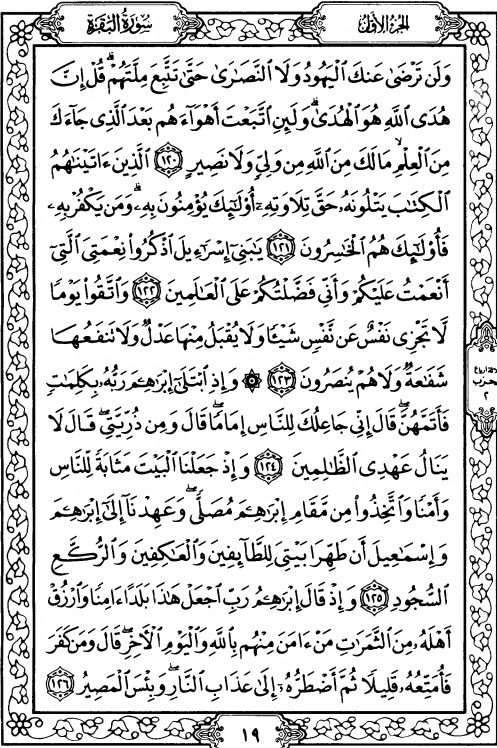 الجزء الأول
سورة البقرة
وَلَن تَرْضَىٰ عَنكَ ٱلْيَهُودُ وَلَا ٱلنَّصَـٰرَىٰ حَتَّىٰ تَتَّبِعَ مِلَّتَهُمْ ۗ قُلْ إِنَّ
هُدَى ٱللَّهِ هُوَ ٱلْهُدَىٰ ۗ وَلَئِنِ ٱتَّبَعْتَ أَهْوَآءَهُم بَعْدَ ٱلَّذِى جَآءَكَ
مِنَ ٱلْعِلْمِ ۙ مَالَكَ مِنَ ٱللَّهِ مِن وَلِىٍّ وَلَا نَصِيرٍ ١٢٠ ٱلَّذِينَ ءَاتَيْنَـٰهُمُ
ٱلْكِتَـٰبَ يَتْلُونَهُۥ حَقَّ تِلَاوَتِهِۦٓ أُو۟لَـٰٓئِكَ يُؤْمِنُونَ بِهِۦ ۗ وَمَن يَكْفُرْ بِهِۦ
فَأُو۟لَـٰٓئِكَ هُمُ ٱلْخَـٰسِرُونَ ١٢١ يَـٰبَنِىٓ إِسْرَٰٓءِيلَ ٱذْكُرُوا۟ نِعْمَتِىَ ٱلَّتِىٓ
أَنْعَمْتُ عَلَيْكُمْ وَأَنِّى فَضَّلْتُكُمْ عَلَى ٱلْعَـٰلَمِينَ ١٢٢ وَٱتَّقُوا۟ يَوْمًا
لَّا تَجْزِى نَفْسٌ عَن نَّفْسٍ شَيْـًٔا وَلَا يُقْبَلُ مِنْهَا عَدْلٌ وَلَا تَنفَعُهَا
شَفَـٰعَةٌ وَلَا هُمْ يُنصَرُونَ ١٢٣ ۞ وَإِذِ ٱبْتَلَىٰٓ إِبْرَٰهِـۧمَ رَبُّهُۥ بِكَلِمَـٰتٍ
فَأَتَمَّهُنَّ ۖ قَالَ إِنِّى جَاعِلُكَ لِلنَّاسِ إِمَامًا ۖ قَالَ وَمِن ذُرِّيَّتِى ۖ قَالَ لَا
يَنَالُ عَهْدِى ٱلظَّـٰلِمِينَ ١٢٤ وَإِذْ جَعَلْنَا ٱلْبَيْتَ مَثَابَةً لِّلنَّاسِ
وَأَمْنًا وَٱتَّخِذُوا۟ مِن مَّقَامِ إِبْرَٰهِـۧمَ مُصَلًّى ۖ وَعَهِدْنَآ إِلَىٰٓ إِبْرَٰهِـۧمَ
وَإِسْمَـٰعِيلَ أَن طَهِّرَا بَيْتِىَ لِلطَّآئِفِينَ وَٱلْعَـٰكِفِينَ وَٱلرُّكَّعِ
ٱلسُّجُودِ ١٢٥ وَإِذْ قَالَ إِبْرَٰهِـۧمُ رَبِّ ٱجْعَلْ هَـٰذَا بَلَدًا ءَامِنًا وَٱرْزُقْ
أَهْلَهُۥ مِنَ ٱلثَّمَرَٰتِ مَنْ ءَامَنَ مِنْهُم بِٱللَّهِ وَٱلْيَوْمِ ٱلْـَٔاخِرِ ۖ قَالَ وَمَن كَفَرَ
فَأُمَتِّعُهُۥ قَلِيلًا ثُمَّ أَضْطَرُّهُۥٓ إِلَىٰ عَذَابِ ٱلنَّارِ ۖ وَبِئْسَ ٱلْمَصِيرُ ١٢٦
الحزب
٢
١٩